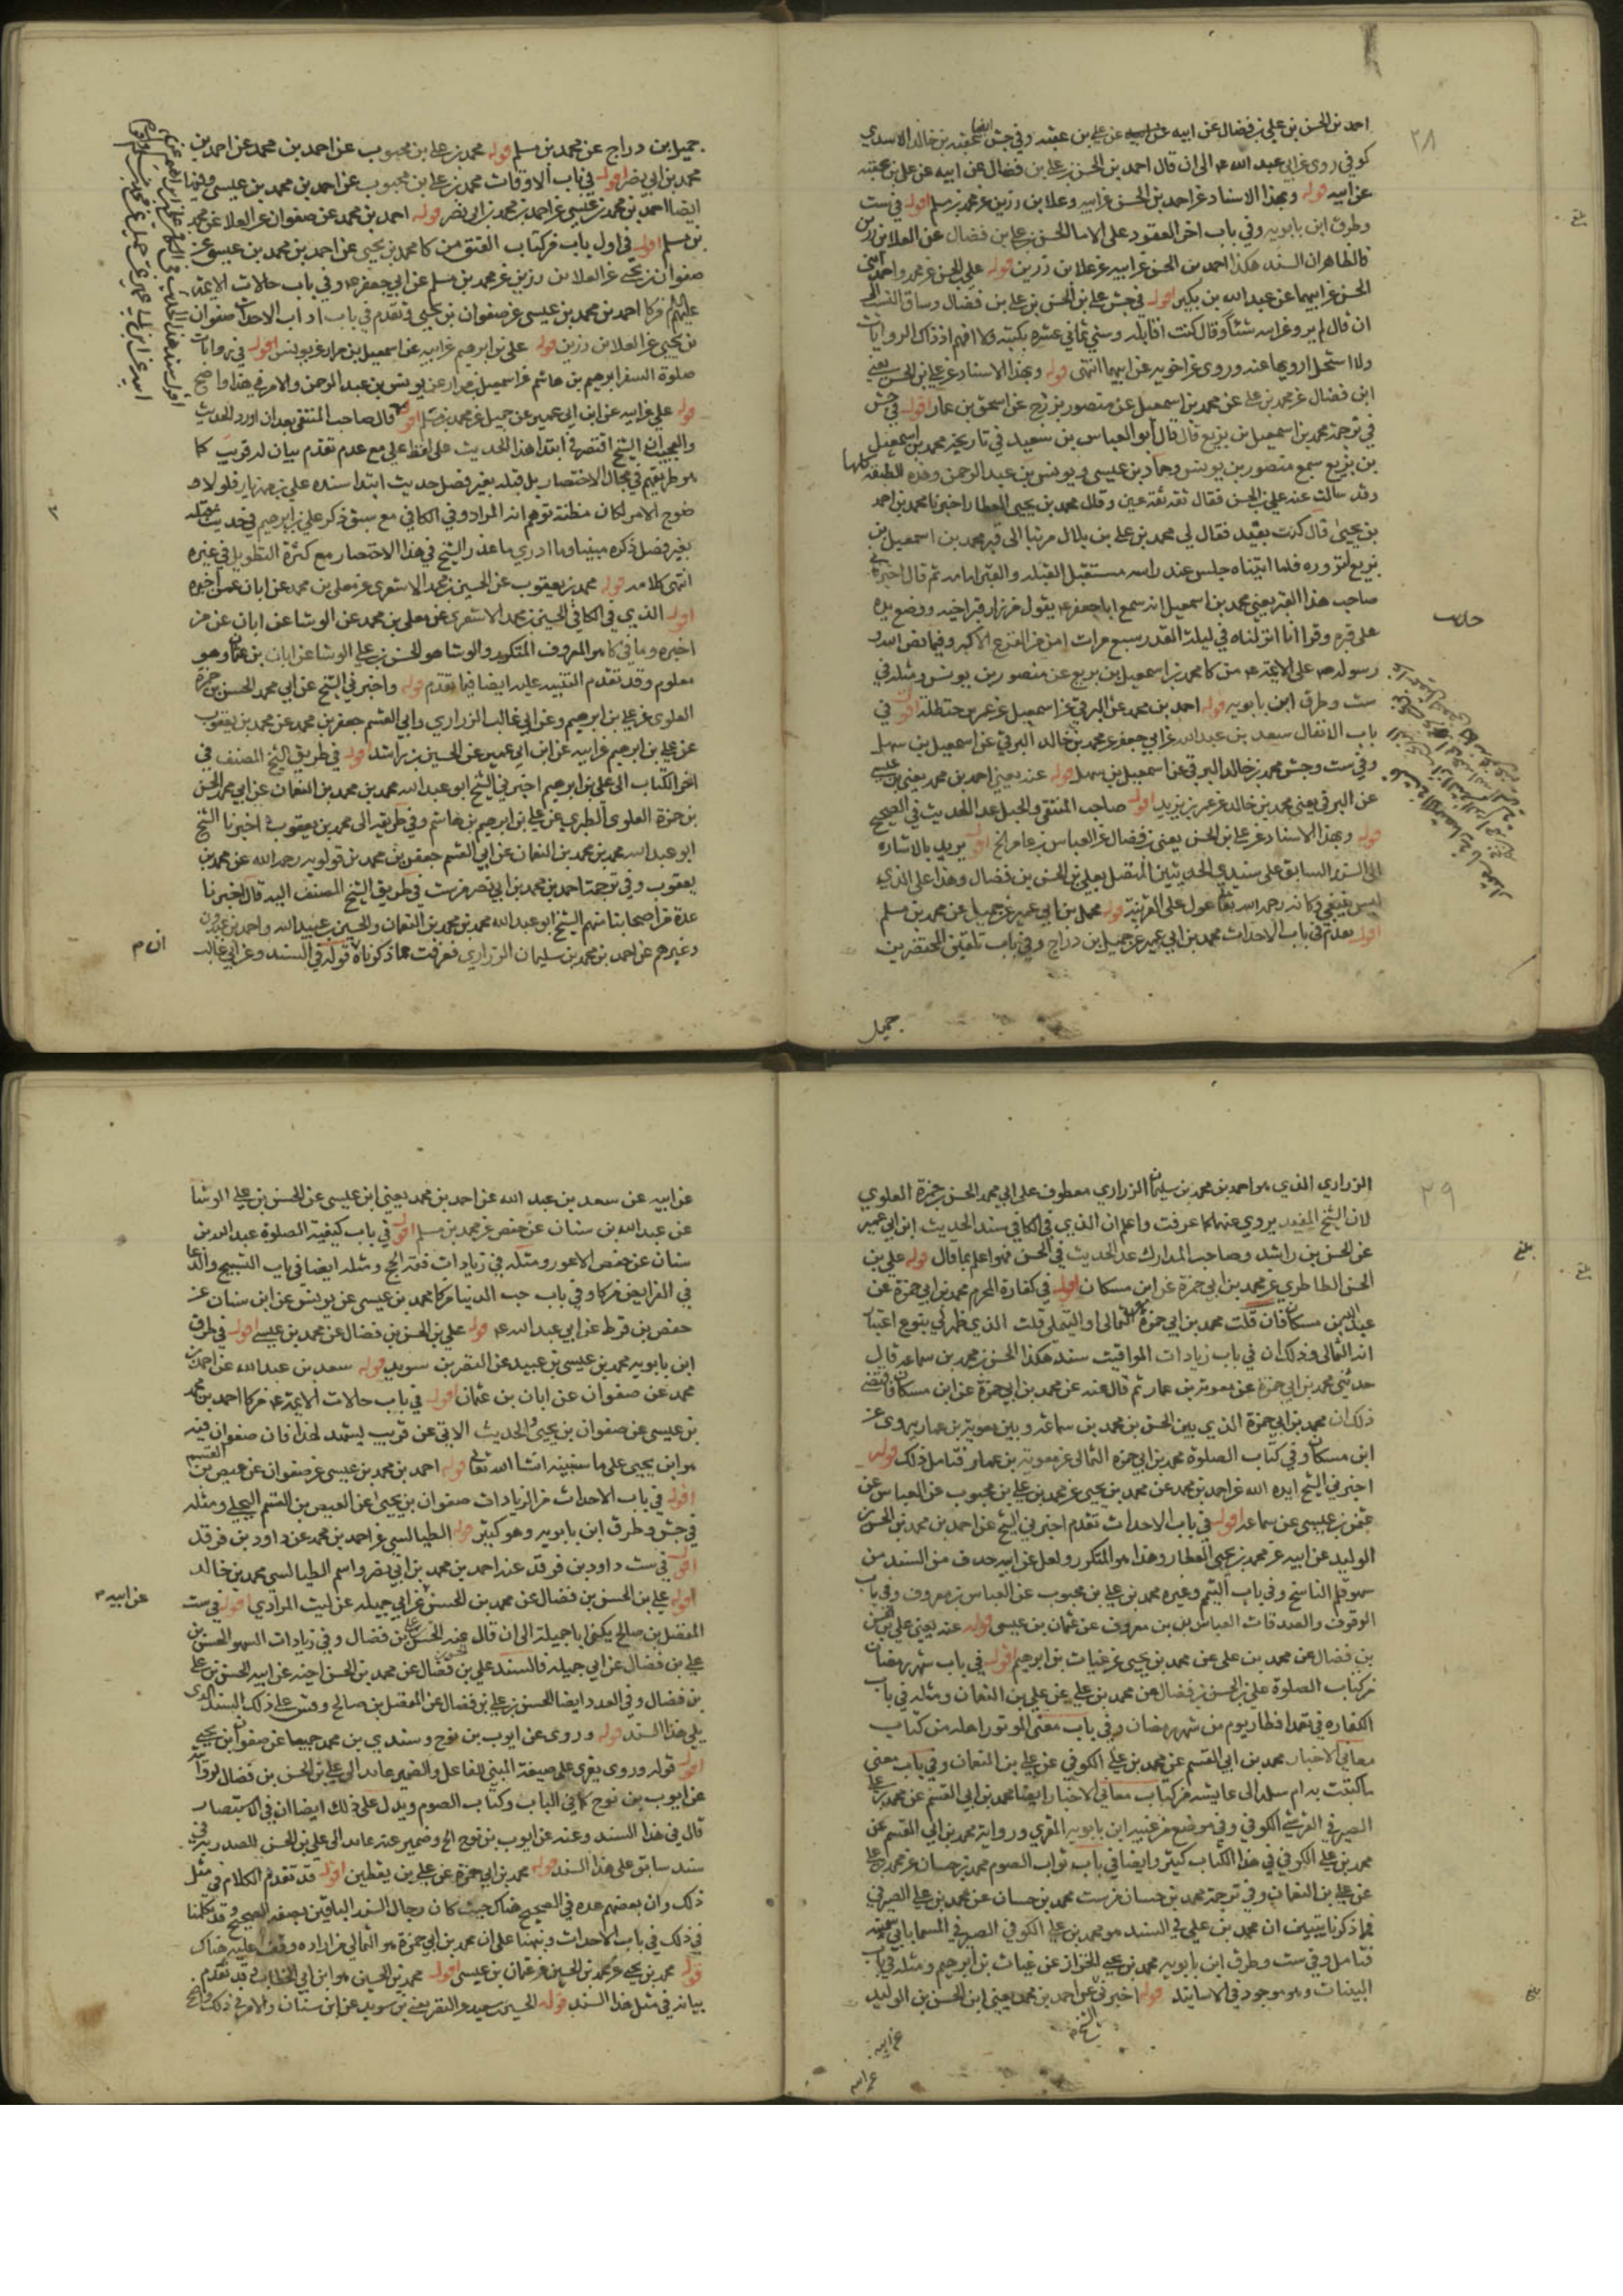 ٢٨
احمد بن الحسن بن علي بن فضال عن ابيه عن علي بن عقبه وفي جش ايضا عقبه بن خالد الاسدي
كوفي روى عن ابي عبد الله ع الى ان قال احمد بن الحسن بن علي بن فضال عن ابيه عن علي بن عقبه
عن ابيه قوله وبهذا الاسناد عن احمد بن الحسن عن ابيه وعلا بن رزين عن محمد بن مسلم اقول في ست
وطرق ابن بابويه وفي باب اخر العقود على الاما الحسن بن علي بن فضال عن العلا بن رزين
فالظاهر ان السند هكذا احمد بن الحسن عن ابيه عن علا بن رزين قوله علي بن الحسن عن محمد واحمد ابني
الحسن عن ابيهما عن عبد الله بن بكير اقول في جش علي بن الحسن بن علي بن فضال وساق النسب الى
ان قال لم يرو عن ابيه شيئا وقال كنت اقابله وسني ثماني عشره بكتبه ولا افهم اذ ذاك الروايات
ولا استحل ارويها عنه وروى عن اخويه عن ابيهما انتهى قوله وبهذا الاسناد عن علي بن الحسن يعني
ابن فضال عن محمد بن علي عن محمد بن اسمعيل عن منصور بن بزرج عن اسحق بن عمار اقول في جش
في ترجمة محمد بن اسمعيل بن بزيع قال قال ابو العباس بن سعيد في تاريخه محمد بن اسمعيل
بن بزيع سمع منصور بن يونس وحماد بن عيسى ويونس بن عبد الرحمن وهذه الطبقه كلها
وقد سالت عنه علي بن الحسن فقال ثقه ثقه عين وقال محمد بن يحيى العطار اخبرنا محمد بن احمد
بن يحيى قال كنت بفيد فقال لي محمد بن علي بن بلال مر بنا الى قبر محمد بن اسمعيل بن
بزيع لنزوره فلما اتيناه جلس عند راسه مستقبل القبله والقبر امامه ثم قال اخبرني
صاحب هذا القبر يعني محمد بن اسمعيل انه سمع ابا جعفر ع يقول من زار قبر اخيه ووضع يده
على قبره وقرا انا انزلناه في ليلة القدر سبع مرات امن من الفزع الاكبر وفيما نص الله و
رسوله ص على الائمه ع من كا محمد بن اسمعيل بن بزيع عن منصور بن يونس ومثله في
ست وطرق ابن بابويه قوله احمد بن محمد عن البرقي عن اسمعيل عن عمر بن حنظله اقول في
باب الانفال سعد بن عبد الله عن ابي جعفر عن محمد بن خالد البرقي عن اسمعيل بن سهل
وفي ست وجش محمد بن خالد البرقي عن اسمعيل بن سهل قوله عنه يعني احمد بن محمد يعني بن عيسى
عن البرقي يعني محمد بن خالد عن عمر بن يزيد اقول صاحب المنتقى والحبل عدا الحديث في الصحيح
قوله وبهذا الاسناد عن علي بن الحسن يعني بن فضال عن العباس بن عامر الخ اقول يريد بالاشاره
الى السند السابق على سندي الحديثين المتصل بعلي بن الحسن بن فضال وهذا على الذي
ليس ينبغي وكانه رحمه الله تعالى عول على القرينة قوله محمد بن ابي عمير عن جميل عن محمد بن مسلم
اقول تقدم في باب الاحداث محمد بن ابي عمير عن جميل بن دراج وفي باب تلقين المحتضرين
جميل
جميل بن دراج عن محمد بن مسلم قوله محمد بن علي بن محبوب عن احمد بن محمد عن احمد بن
محمد بن ابي نصر اقول في باب الاوقات محمد بن علي بن محبوب عن احمد بن محمد بن عيسى وفيها
ايضا احمد بن محمد بن عيسى عن احمد بن محمد بن ابي نصر قوله احمد بن محمد عن صفوان عن العلا عن محمد
بن مسلم اقول في اول باب من كتاب العتق من كا محمد بن يحيى عن احمد بن محمد بن عيسى عن
صفوان بن يحيى عن العلا بن رزين عن محمد بن مسلم عن ابي جعفر ع وفي باب حالات الائمه
عليهم من كا احمد بن محمد بن عيسى عن صفوان بن يحيى وتقدم في باب اداب الاحداث صفوان
بن يحيى عن العلا بن رزين قوله علي بن ابرهيم عن ابيه عن اسمعيل بن مرار عن يونس اقول في روايات
صلوة السفر ابرهيم بن هاشم عن اسمعيل بن مرار عن يونس بن عبد الرحمن والامر في هذا واضح
قوله علي عن ابيه عن ابن ابي عمير عن جميل عن محمد بن مسلم اقول قال صاحب المنتقى بعد ان اورد الحديث
والعجيب ان الشيخ اقتصر في ابتدا هذا الحديث على لفظ علي مع عدم تقدم بيان له قريب كا
هو طريقتهم في مجال الاختصار بل قبله بغير فصل حديث ابتدا سنده علي بن مهزيار فلولا
وضوح الامر لكان مظنة توهم انه المراد وفي الكافي مع سبق ذكر علي بن ابرهيم في حديث قبله
بغير فصل ذكره مبينا وما ادري ما عذر الشيخ في هذا الاختصار مع كثرة التطويل في غيره
انتهى كلامه قوله محمد بن يعقوب عن الحسين بن محمد الاشعري عن معلى بن محمد عن ابان عمن اخبره
اقول الذي في الكافي الحسين بن محمد الاشعري عن معلى بن محمد عن الوشا عن ابان عن من
اخبره وما في كا هو المعروف المتكرر والوشا هو الحسن بن علي الوشا عن ابان بن عثمان وهو
معلوم وقد تقدم التنبيه عليه ايضا فيما تقدم قوله واخبرني الشيخ عن ابي محمد الحسن بن حمزة
العلوي عن علي بن ابرهيم وعن ابي غالب الزراري وابي القسم جعفر بن محمد عن محمد بن يعقوب
عن علي بن ابرهيم عن ابيه عن ابن ابي عمير عن الحسين بن راشد اقول في طريق الشيخ المصنف في
اخر الكتاب الى علي بن ابرهيم اخبرني الشيخ ابو عبد الله محمد بن محمد بن النعمان عن ابي محمد الحسن
بن حمزة العلوي الطبري عن علي بن ابرهيم بن هاشم وفي طريقه الى محمد بن يعقوب اخبرنا الشيخ
ابو عبد الله محمد بن محمد بن النعمان عن ابي القسم جعفر بن محمد بن قولويه رحمه الله عن محمد بن
يعقوب وفي ترجمة احمد بن محمد بن ابي نصر من ست في طريق الشيخ المصنف اليه قال اخبرنا
عدة من اصحابنا منهم الشيخ ابو عبد الله محمد بن محمد بن النعمان والحسين بن عبيد الله واحمد بن عبدون
وغيرهم عن احمد بن محمد بن سليمان الزراري فعرفت مما ذكرناه قوله في السند وعن ابي غالب
٢٩
الزراري الذي هو احمد بن محمد بن سليمان الزراري معطوف على ابي محمد الحسن بن حمزة العلوي
لان الشيخ المفيد يروي عنهما كما عرفت واعلم ان الذي في الكافي سند الحديث ابن ابي عمير
عن الحسن بن راشد وصاحب المدارك عد الحديث في الحسن وهو اعلم بما قال قوله علي بن
الحسن الطاطري عن محمد بن ابي حمزة عن ابن مسكان اقول في كفارة المحرم محمد بن ابي حمزة عن
عبد الله بن مسكان فان قلت محمد بن ابي حمزة هو الثمالي او التيملي قلت الذي ظهر لي بنوع اعتبار
انه الثمالي وذلك ان في باب زيادات المواقيت سند هكذا الحسن بن محمد بن سماعه قال
حدثني محمد بن ابي حمزة عن معوية بن عمار ثم قال عنه عن محمد بن ابي حمزة عن ابن مسكان فاقتضى
ذلك ان محمد بن ابي حمزة الذي بين الحسن بن محمد بن سماعة وبين معوية بن عمار يروي عن
ابن مسكان وفي كتاب الصلوة محمد بن ابي حمزه الثمالي عن معوية بن عمار فتامل ذلك قوله
اخبرني الشيخ ايده الله عن احمد بن محمد عن محمد بن يحيى عن محمد بن علي بن محبوب عن العباس عن
عثمن بن عيسى عن سماعه اقول في باب الاحداث تقدم اخبرني الشيخ عن احمد بن محمد بن الحسن بن
الوليد عن ابيه عن محمد بن يحيى العطار وهذا هو المتكرر ولعل عن ابيه حذف من السند من
سهو قلم الناسخ وفي باب التيمم وغيره محمد بن علي بن محبوب عن العباس بن معروف وفي باب
الوقوف والصدقات العباس بن معروف عن عثمان بن عيسى قوله عنه يعني علي بن الحسن
بن فضال عن محمد بن علي عن محمد بن يحيى عن غياث بن ابرهيم اقول في باب شهر رمضان
من كتاب الصلوة علي بن الحسن بن فضال عن محمد بن علي عن علي بن النعمان ومثله في باب
الكفاره في تعمد افطار يوم من شهر رمضان وفي باب معنى الموتور اهله من كتاب
معاني الاخبار محمد بن ابي القسم عن محمد بن علي الكوفي عن علي بن النعمان وفي باب معنى
ما كتبت به ام سلمه الى عايشه من كتاب معاني الاخبار ايضا محمد بن ابي القسم عن محمد بن علي
الصيرفي القرشي الكوفي وفي موضع من غيبة ابن بابويه المقري ورواية محمد بن ابي القسم عن
محمد بن علي الكوفي في هذا الكتاب كثير وايضا في باب ثواب الصوم محمد بن حسان عن محمد بن علي
عن علي بن النعمان وفي ترجمة محمد بن حسان من ست محمد بن حسان عن محمد بن علي الصيرفي
فما ذكرنا يتبين ان محمد بن علي في السند هو محمد بن علي الكوفي الصيرفي المسما بابي سمينه
فتامل وفي ست وطرق ابن بابويه محمد بن يحيى الخزاز عن غياث بن ابرهيم ومثله في باب
البينات وهو موجود في الاسانيد قوله اخبرني الشيخ عن احمد بن محمد يعني ابن الحسن بن الوليد
عن ابيه
عن ابيه عن سعد بن عبد الله عن احمد بن محمد يعني ابن عيسى عن الحسن بن علي الوشا
عن عبد الله بن سنان عن حفص عن محمد بن مسلم اقول في باب كيفية الصلوة عبد الله بن
سنان عن حفص الاعور ومثله في زيادات فقه الحج ومثله ايضا في باب التسبيح والدعا
في الفرايض من كا وفي باب حب الدنيا من كا محمد بن عيسى عن يونس عن ابن سنان عن
حفص بن قرط عن ابي عبد الله ع قوله علي بن الحسن بن فضال عن محمد بن عيسى اقول في طرق
ابن بابويه محمد بن عيسى بن عبيد عن النضر بن سويد قوله سعد بن عبد الله عن احمد بن
محمد عن صفوان عن ابان بن عثمان اقول في باب حالات الائمة ع من كا احمد بن محمد
بن عيسى عن صفوان بن يحيى والحديث الاتي عن قريب يشهد لهذا فان صفوان فيه
هو ابن يحيى على ما سنبينه انشا الله تعالى قوله احمد بن محمد بن عيسى عن صفوان عن عيص بن القسم
اقول في باب الاحداث من الزيادات صفوان بن يحيى عن العيص بن القسم البجلي ومثله
في جش وطرق ابن بابويه وهو كثير قوله الطيالسي عن احمد بن محمد عن داود بن فرقد
اقول في ست داود بن فرقد عنه احمد بن محمد بن ابي نصر واسم الطيالسي محمد بن خالد
قوله علي بن الحسن بن فضال عن محمد بن الحسن عن ابي جميله عن ليث المرادي اقول في ست
المفضل بن صالح يكنى ابا جميلة الى ان قال عنه الحسن بن علي بن فضال وفي زيادات السهو الحسن بن
علي بن فضال عن ابي جميله فالسند علي بن فضال عن محمد بن الحسن اخيه عن ابيه الحسن بن علي
بن فضال وفي العدد ايضا الحسن بن علي بن فضال عن المفضل بن صالح وقس على ذلك السند الذي
يلي هذا السند قوله وروى عن ايوب بن نوح وسندي بن محمد جميعا عن صفوان بن يحيى
اقول قوله وروى يقرى على صيغة المبني للفاعل والضمير عايد الى علي بن الحسن بن فضال لروايته
عن ايوب بن نوح كما في الباب وكتاب الصوم ويدل على ذلك ايضا ان في الاستبصار
قال في هذا السند وعنه عن ايوب بن نوح الخ وضمير عنه عايد الى علي بن الحسن المصدر به في
سند سابق على هذا السند قوله محمد بن ابي حمزة عن علي بن يقطين اقول قد تقدم الكلام في مثل
ذلك وان بعضهم عده في الصحيح هناك حيث كان رجال السند الباقين بصفه الصحيح وقد تكلمنا
في ذلك في باب الاحداث ونبهنا على ان محمد بن ابي حمزة هو الثمالي فمن اراده وقف عليه هناك
قوله محمد بن يحيى عن محمد بن الحسين عن عثمان بن عيسى اقول محمد بن الحسين هو ابن ابي الخطاب وقد تقدم
بيانه في مثل هذا السند قوله الحسين بن سعيد والنضر يعني بن سويد عن ابن سنان والامر في ذلك واضح